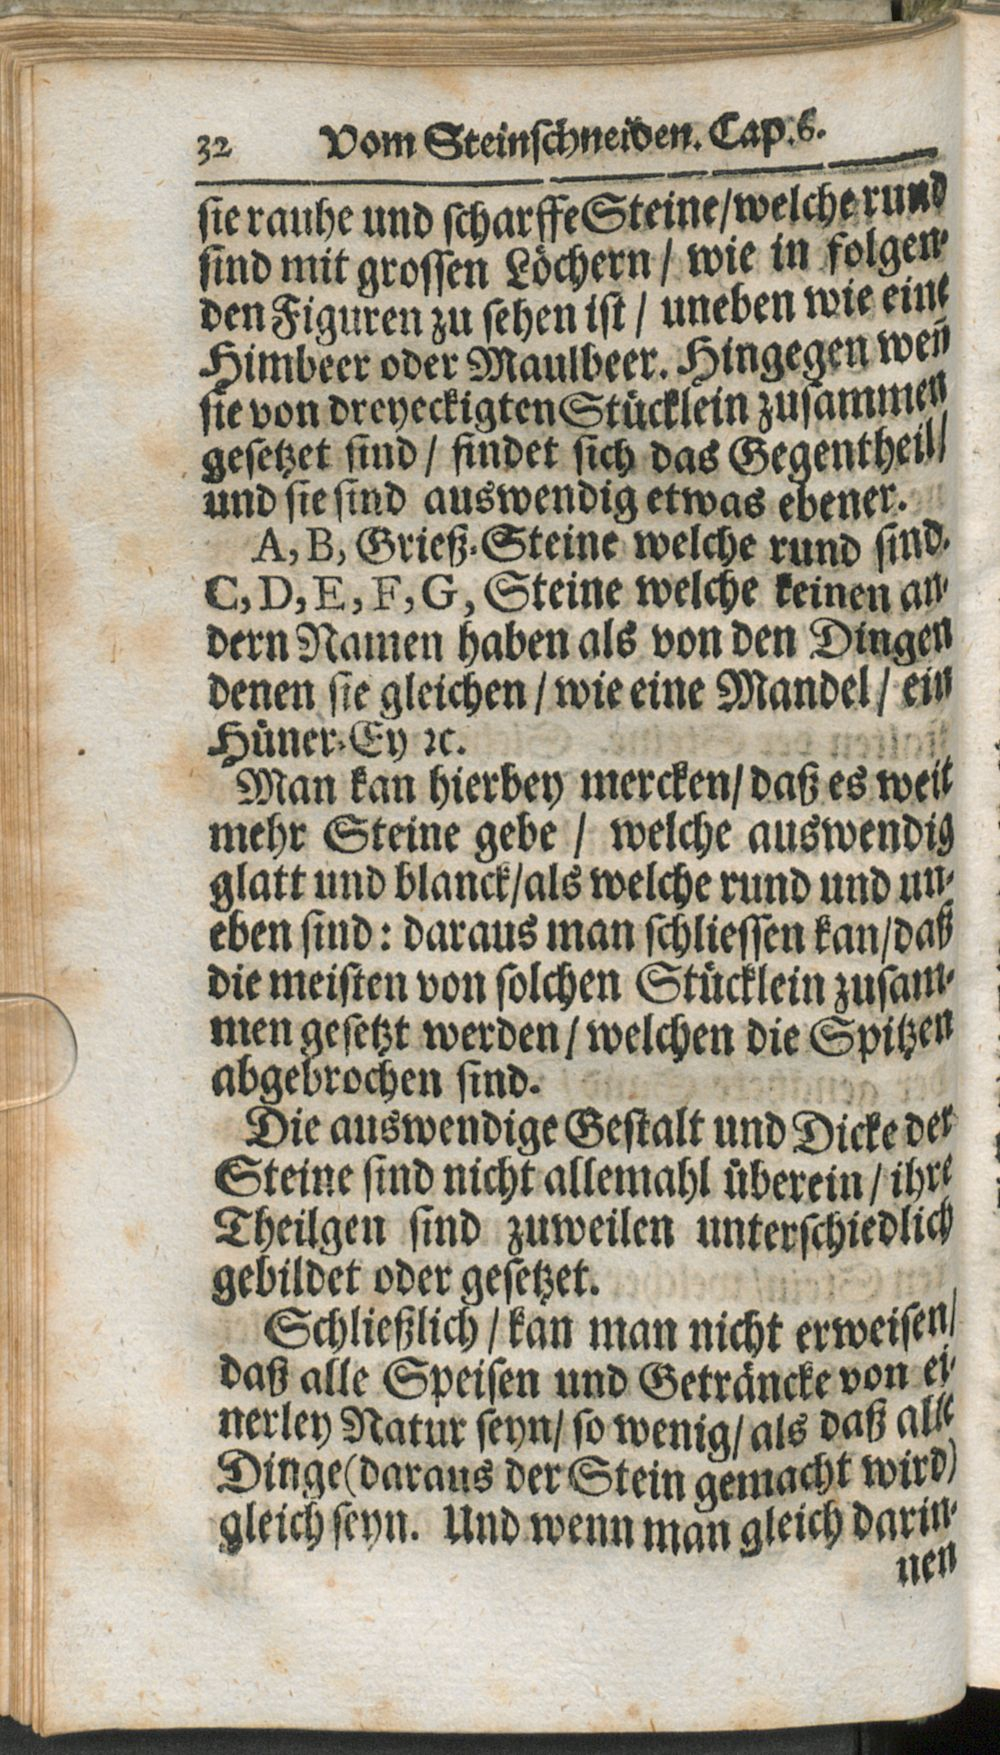 32 Vom Steinschneiden. Cap. 6.
sie rauhe und scharffe Steine/welche rund
sind mit grossen Löchern / wie in folgen-
den Figuren zu sehen ist / uneben wie eine
Himbeer oder Maulbeer. Hingegen weñ
sie von dreyeckigten Stücklein zusammen
gesetzet sind / findet sich das Gegentheil/
und sie sind auswendig etwas ebener.
A, B, Grieß-Steine welche rund sind.
C, D, E, F, G, Steine welche keinen an-
dern Namen haben als von den Dingen
denen sie gleichen / wie eine Mandel / ein
Hüner-Ey ꝛc.
Man kan hierbey mercken/daß es weit
mehr Steine gebe / welche auswendig
glatt und blanck/als welche rund und un-
eben sind: daraus man schliessen kan/daß
die meisten von solchen Stücklein zusam-
men gesetzt werden / welchen die Spitzen
abgebrochen sind.
Die auswendige Gestalt und Dicke der
Steine sind nicht allemahl überein / ihre
Theilgen sind zuweilen unterschiedlich
gebildet oder gesetzet.
Schließlich / kan man nicht erweisen/
daß alle Speisen und Geträncke von ei-
nerley Natur seyn/ so wenig/ als daß alle
Dinge (daraus der Stein gemacht wird)
gleich seyn. Und wenn man gleich darin-
nen